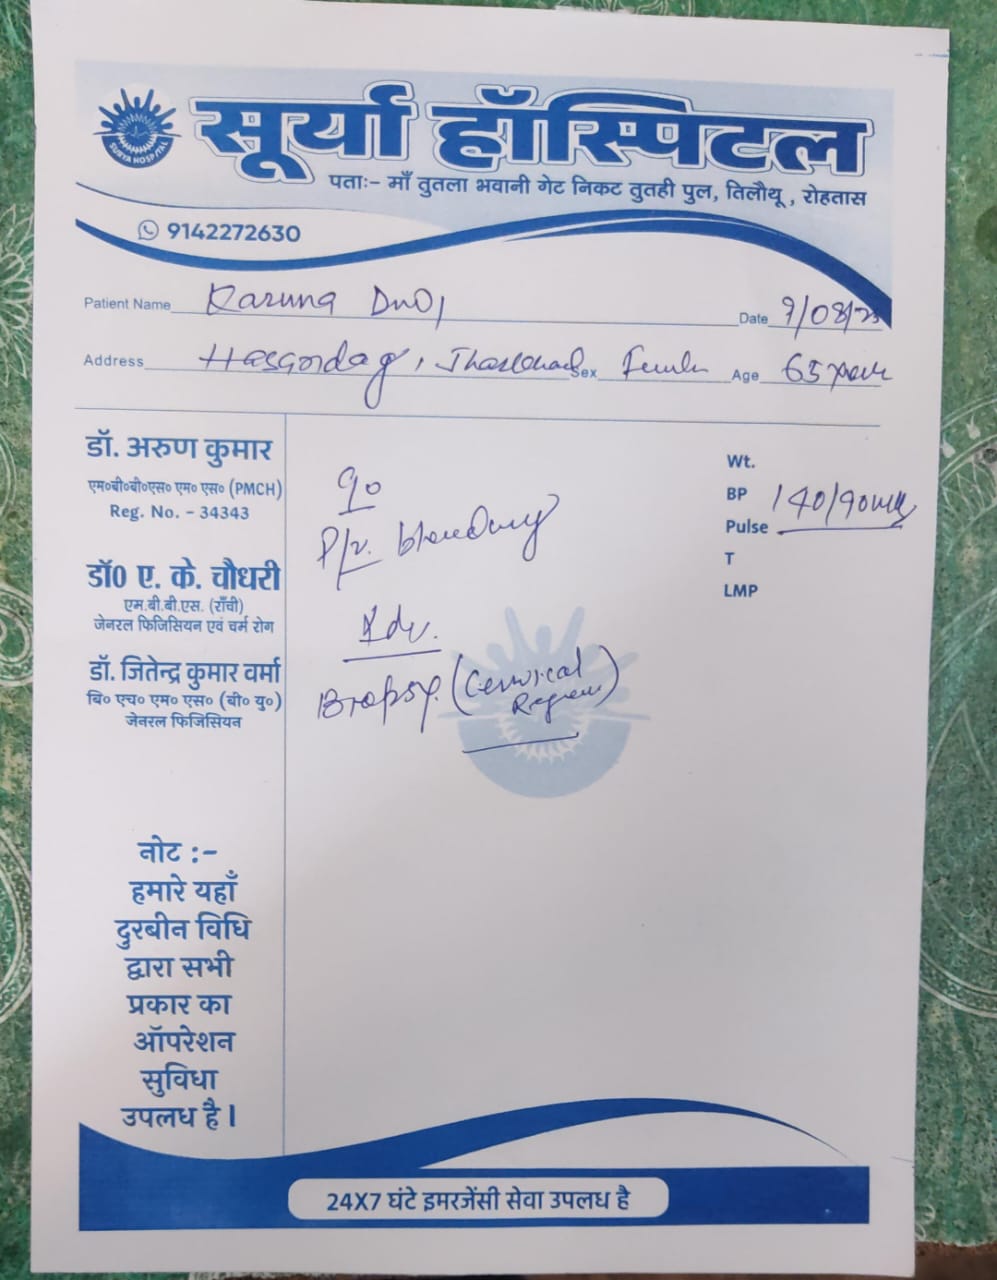 सूर्या हॉस्पिटल
SURYA HOSPITAL
पताः- माँ तुतला भवानी गेट निकट तुतही पुल, तिलौथू , रोहतास
9142272630
Patient Name Karuna Date 9/08/25
Address Sex Age 65 year
डॉ. अरुण कुमार
एम०बी०बी०एस० एम० एस० (PMCH)
Reg. No. - 34343
डॉ0 ए. के. चौधरी
एम.बी.बी.एस. (राँची)
जेनरल फिजिसियन एवं चर्म रोग
डॉ. जितेन्द्र कुमार वर्मा
बि० एच० एम० एस० (बी० यु०)
जेनरल फिजिसियन
नोट :-
हमारे यहाँ
दुरबीन विधि
द्वारा सभी
प्रकार का
ऑपरेशन
सुविधा
उपलध है।
P/v. bleeding
Adv.
Biopsy. (Cervical
Region)
Wt.
BP 140/90
Pulse
T
LMP
24X7 घंटे इमरजेंसी सेवा उपलध है